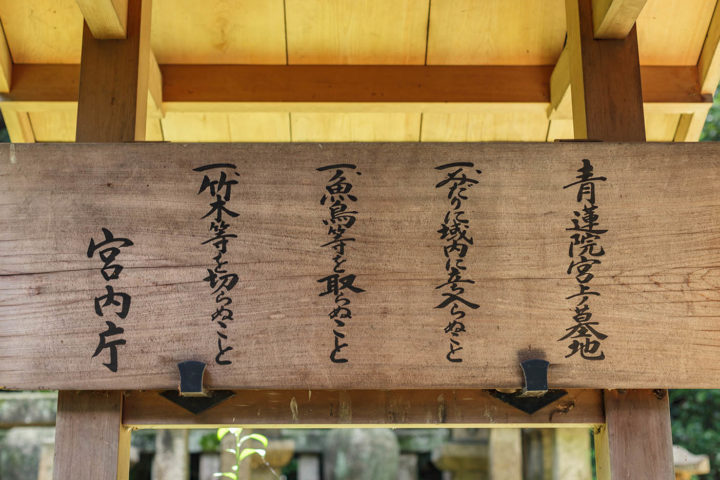 青蓮院宮上ノ墓地
一、みだりに域内に立入らぬこと
一、魚鳥等を取らぬこと
一、竹木等を切らぬこと
宮内庁